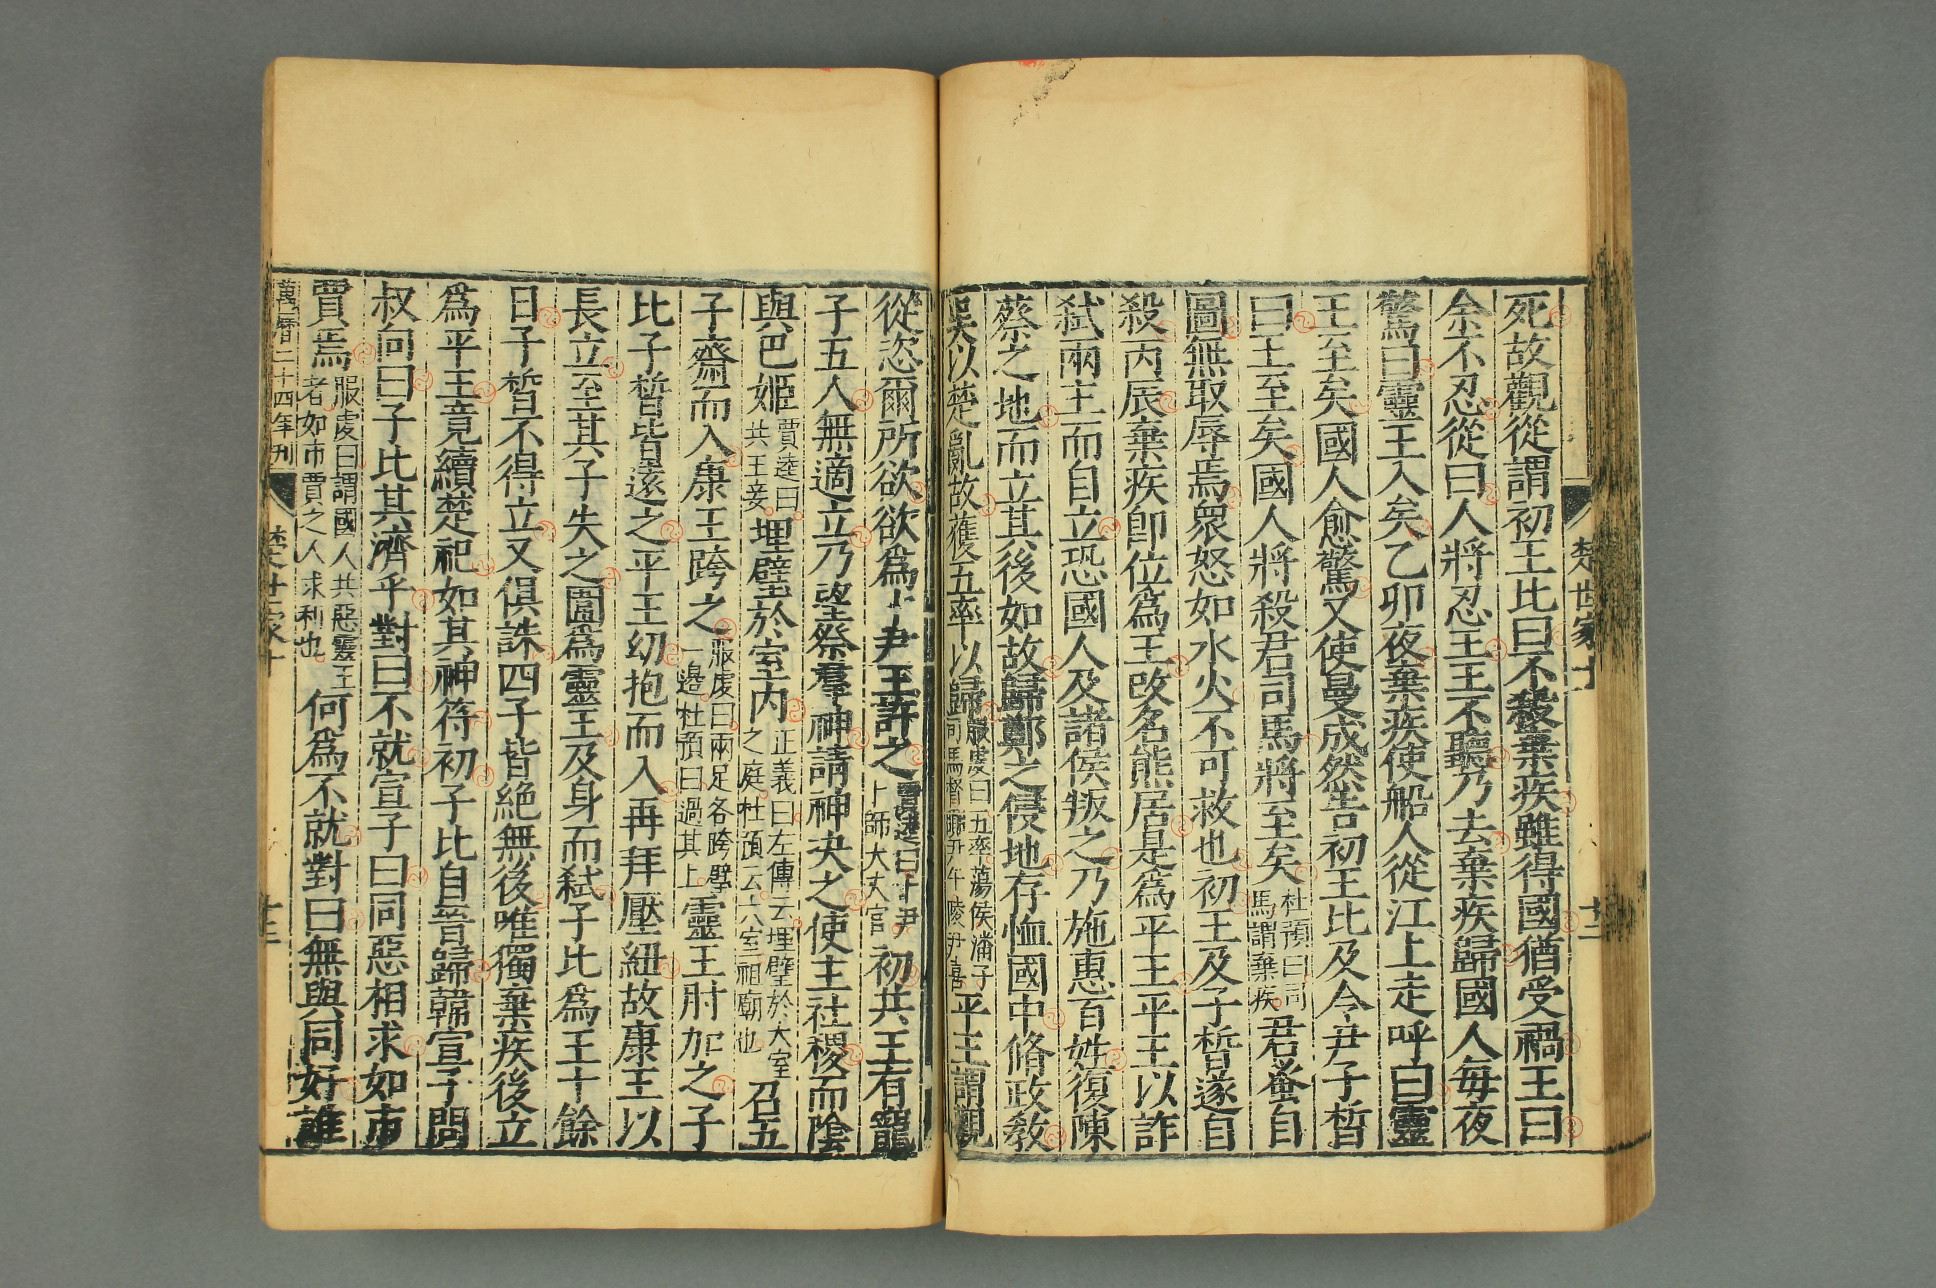 楚世家十
十二
死故觀從謂初王比曰不殺棄疾雖得國猶受禍王曰
余不忍從曰人將忍王王不聽乃去棄疾歸國人每夜
驚曰靈王入矣乙卯夜棄疾使船人從江上走呼曰靈
王至矣國人愈驚又使曼成然告初王比及令尹子晳
曰王至矣國人將殺君司馬將至矣杜預曰司馬謂棄疾君蚤自
圖無取辱焉衆怒如水火不可救也初王及子晳遂自
殺丙辰棄疾卽位爲王改名熊居是爲平王平王以詐
弑兩王而自立恐國人及諸侯叛之乃施惠百姓復陳
蔡之地而立其後如故歸鄭之侵地存恤國中脩政敎
吳以楚亂故獲五率以歸服虔曰五率蕩侯潘子司馬督囂尹午陵尹喜平王謂觀
從恣爾所欲欲爲卜尹王許之賈逵曰卜尹卜師大夫官初共王有寵
子五人無適立乃望祭羣神請神決之使主社稷而陰
與巴姬賈逵曰共王妾埋璧於室內正義曰左傳云埋璧於大室之庭杜預云大室祖廟也召五
子齋而入康王跨之服虔曰兩足各跨璧一邊杜預曰過其上靈王肘加之子
比子晳皆遠之平王幼抱而入再拜壓紐故康王以
長立至其子失之圍爲靈王及身而弑子比爲王十餘
日子晳不得立又俱誅四子皆絶無後唯獨棄疾後立
爲平王竟續楚祀如其神符初子比自晉歸韓宣子問
叔向曰子比其濟乎對曰不就宣子曰同惡相求如市
賈焉服虔曰謂國人共惡靈王者如市賈之人求利也何爲不就對曰無與同好誰
萬曆二十四年刊
楚世家十
十二